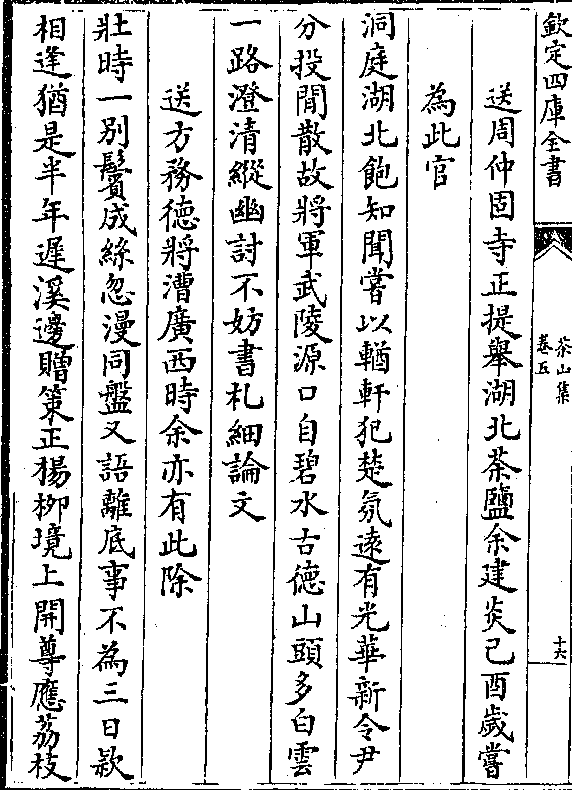 欽定四庫全書
茶山集
卷五
十六
送周仲固寺正提舉湖北茶鹽余建炎己酉歲嘗
為此官
洞庭湖北飽知聞嘗以輶軒犯楚氛逺有光華新令尹
分投閒散故將軍武陵源口自碧水古徳山頭多白雲
一路澄清縱幽討不妨書札細論文
送方務徳將漕廣西時余亦有此除
壯時一別鬢成絲忽漫同盤又語離底事不為三日欵
相逢猶是半年遲溪邊贈策正楊栁境上開尊應荔枝